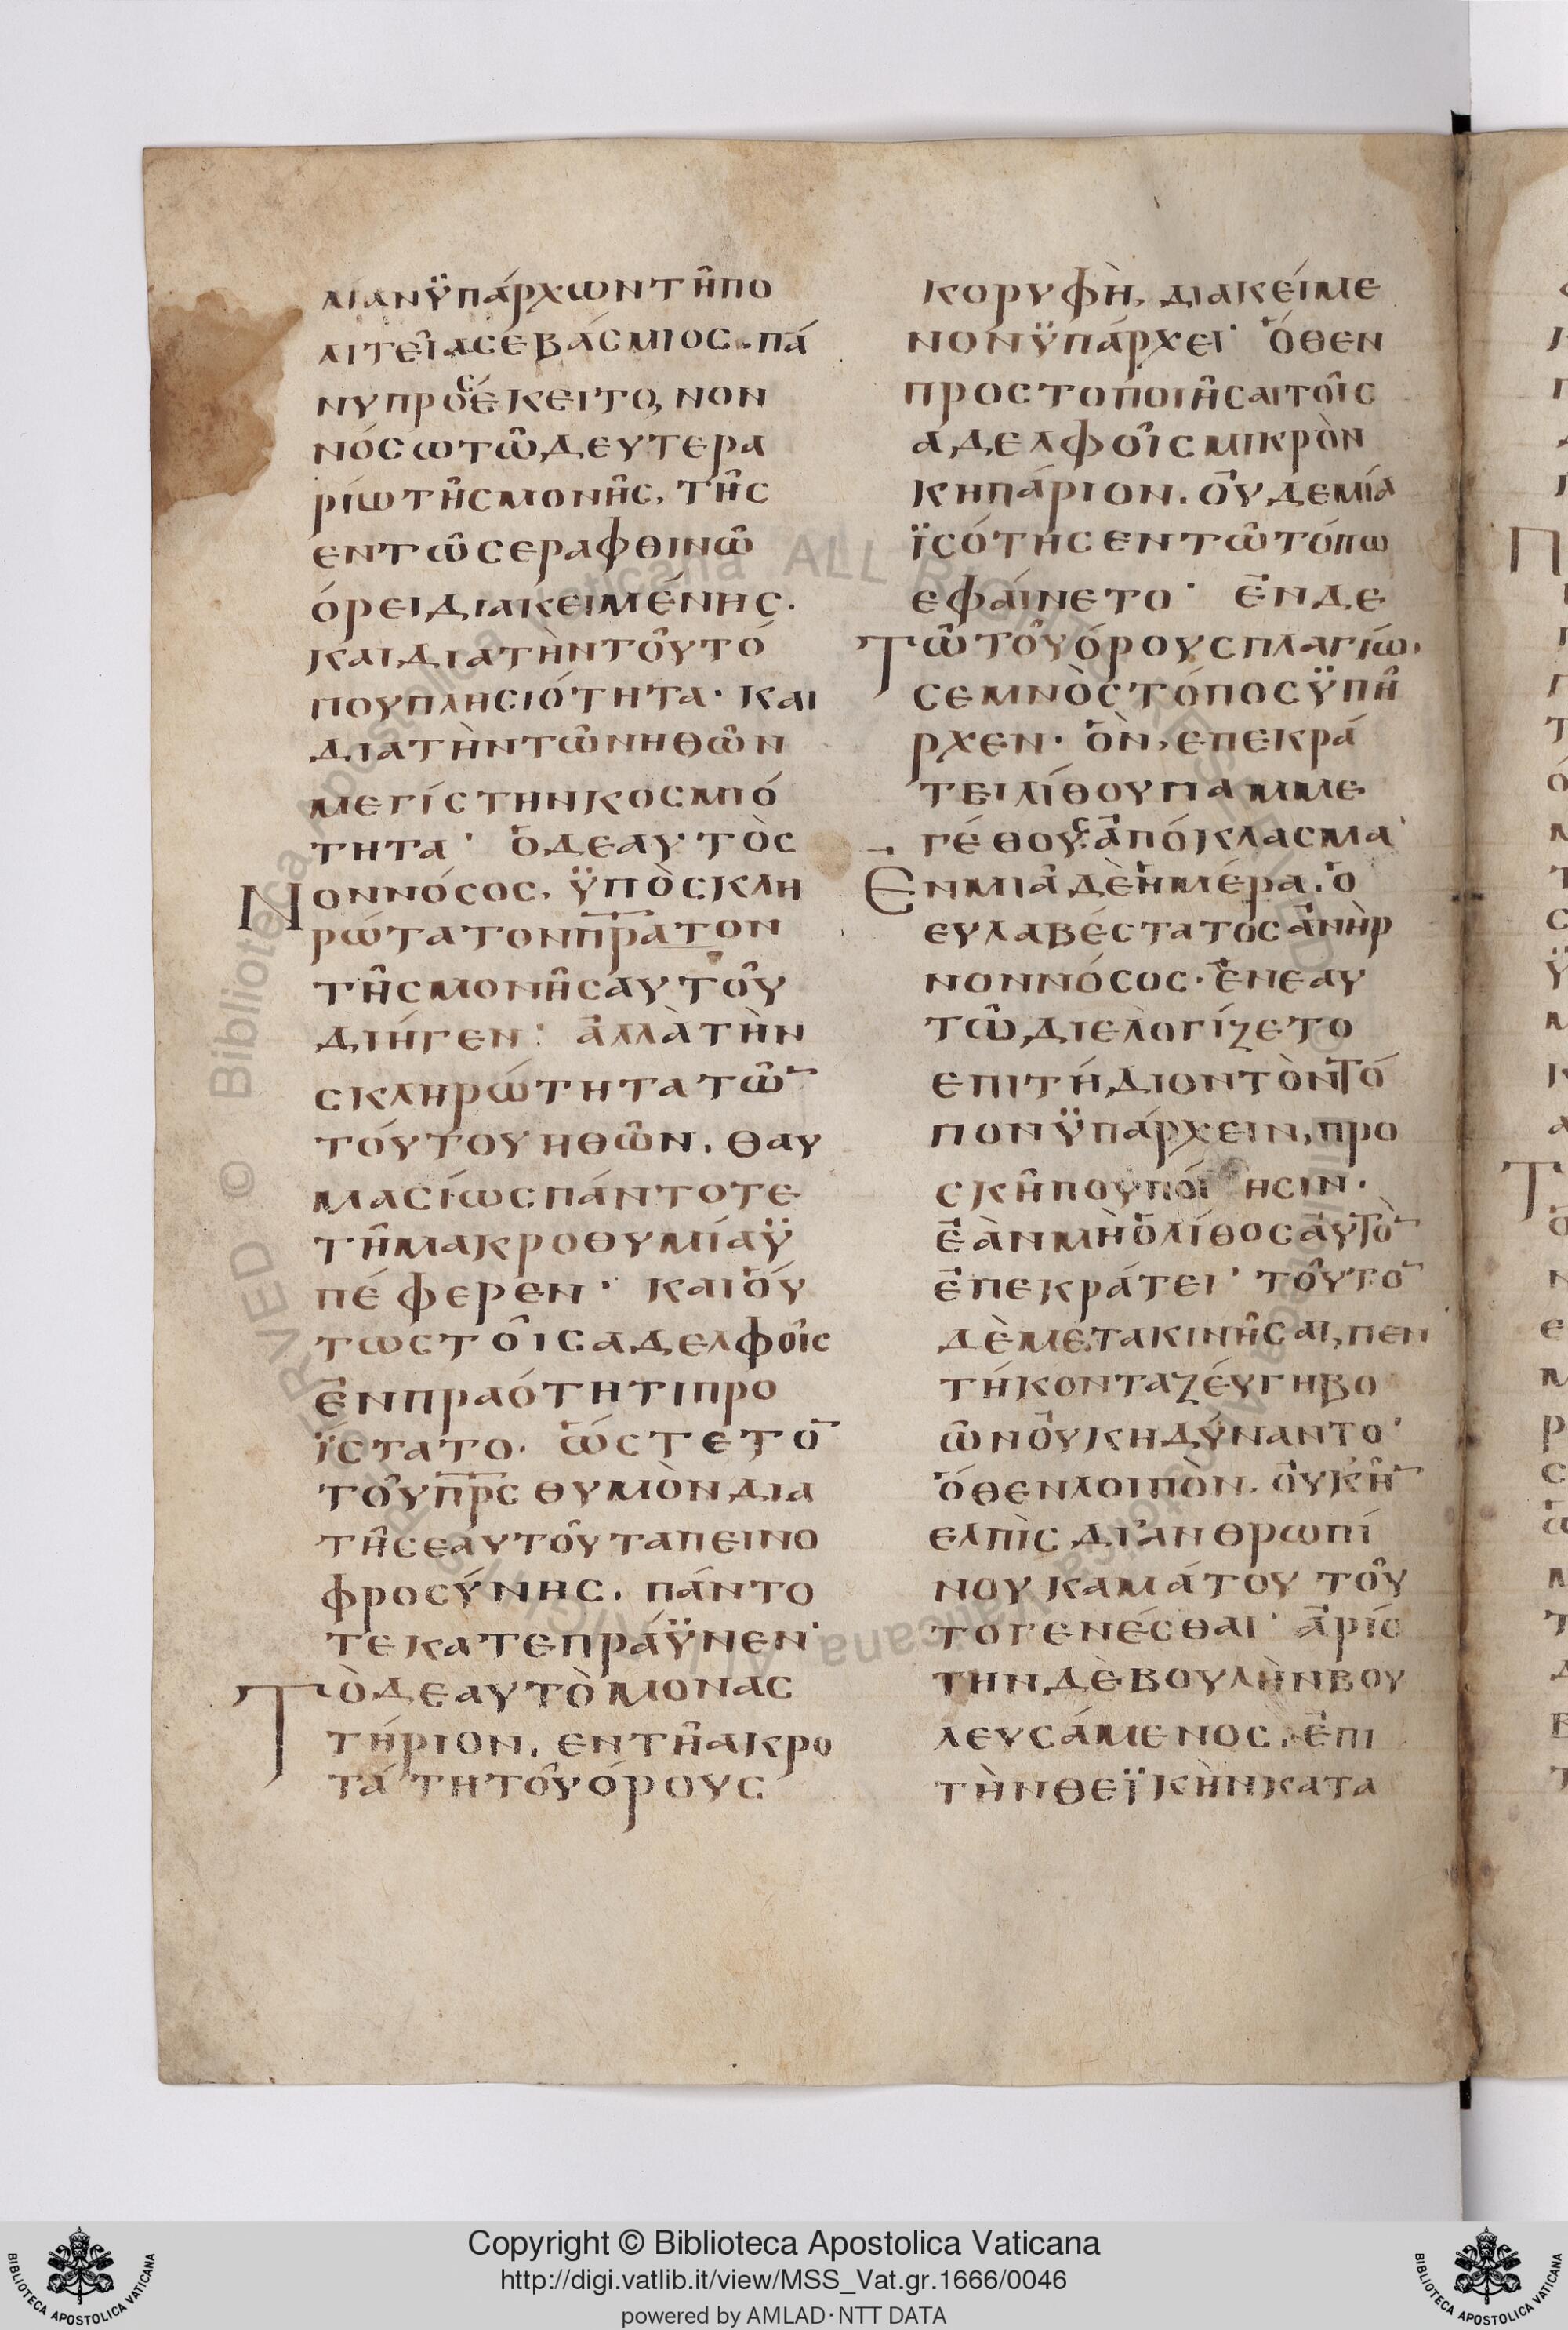 λίανϋπάρχωντῆπο
λιτεῖασεβάσμιος.πά
νυπροσέκειτο, νον
νόσωτῶδευτερα
ρίωτῆςμονῆς, τῆς
εντῶσεραφθινῶ
όρειδιακειμένης.
καιδιατὴντοῦτό
πουπλησιότητα· και
διατὴντῶνηθῶν
μεγίστηνκοσμιό
τητα· ὁδεαυτὸς
Νοννόσος, ϋπὸσκλη
ρώτατονπρ̅ατον
τῆςμονῆςαυτοῦ
διήγεν: ἀλλὰτὴν
σκληρώτητατῶ̅
τόυτουηθῶν. θαυ
μασίωςπάντοτε
τῆμακροθυμίαϋ
πέφερεν· καιὅυ
τωςτοῖςαδελφοῖς
ἐνπραότητιπρο
ΐστατο. ὥστετο̅
τοῦπρ̅ς θυμὸνδια
τῆςεαυτοῦταπεινο
φροσύνης. πάντο
τεκατεπράϋνεν·
Τὸδεαυτὸμονασ
τήριον, εντῆακρο
τάτητοῦόρους
κορυφὴ, διακείμε
νονϋπάρχει· ὅθεν
προστοποιῆσαιτοῖς
αδελφοῖςμικρὸν
κηπάριον. οὐδεμία
ϊσότηςεντῶτόπω
εφαίνετο· ἐνδε
Τῶτοῦόρουςπλαγίω,
σεμνὸςτόποςϋπῆ
ρχεν· ὃν, επεκρά
τειλίθουπαμμε
γέθους ἀπόκλασμα·
Ενμιᾶδὲἡμέρα, ὁ
ευλαβέστατοςἀνὴρ
νοννόσος· ἐνεαυ
τῶδιελογίζετο
επιτήδιοντὸντό
πονϋπάρχειν,προ
σκῆπουποίησιν.
ἐὰνμὴὁλίθοςἀυτὸ̅
ἐπεκράτει· τοῦτο̅
δὲμετακινῆσαι, πεν
τήκονταζέυγηβο
ῶνοὐκηδύναντο·
ὅθενλοιπὸν. οὐκῆ̅
ελπὶς δι'ανθρωπί
νουκαμάτου τοῦ
τογενέσθαι· ἀρίσ
τηνδὲβουλὴνβου
λευσάμενος, ἐπι
τὴνθεϊκὴνκατα
Copyright © Biblioteca Apostolica Vaticana
http://digi.vatlib.it/view/MSS_Vat.gr.1666/0046
powered by AMLAD·NTT DATA